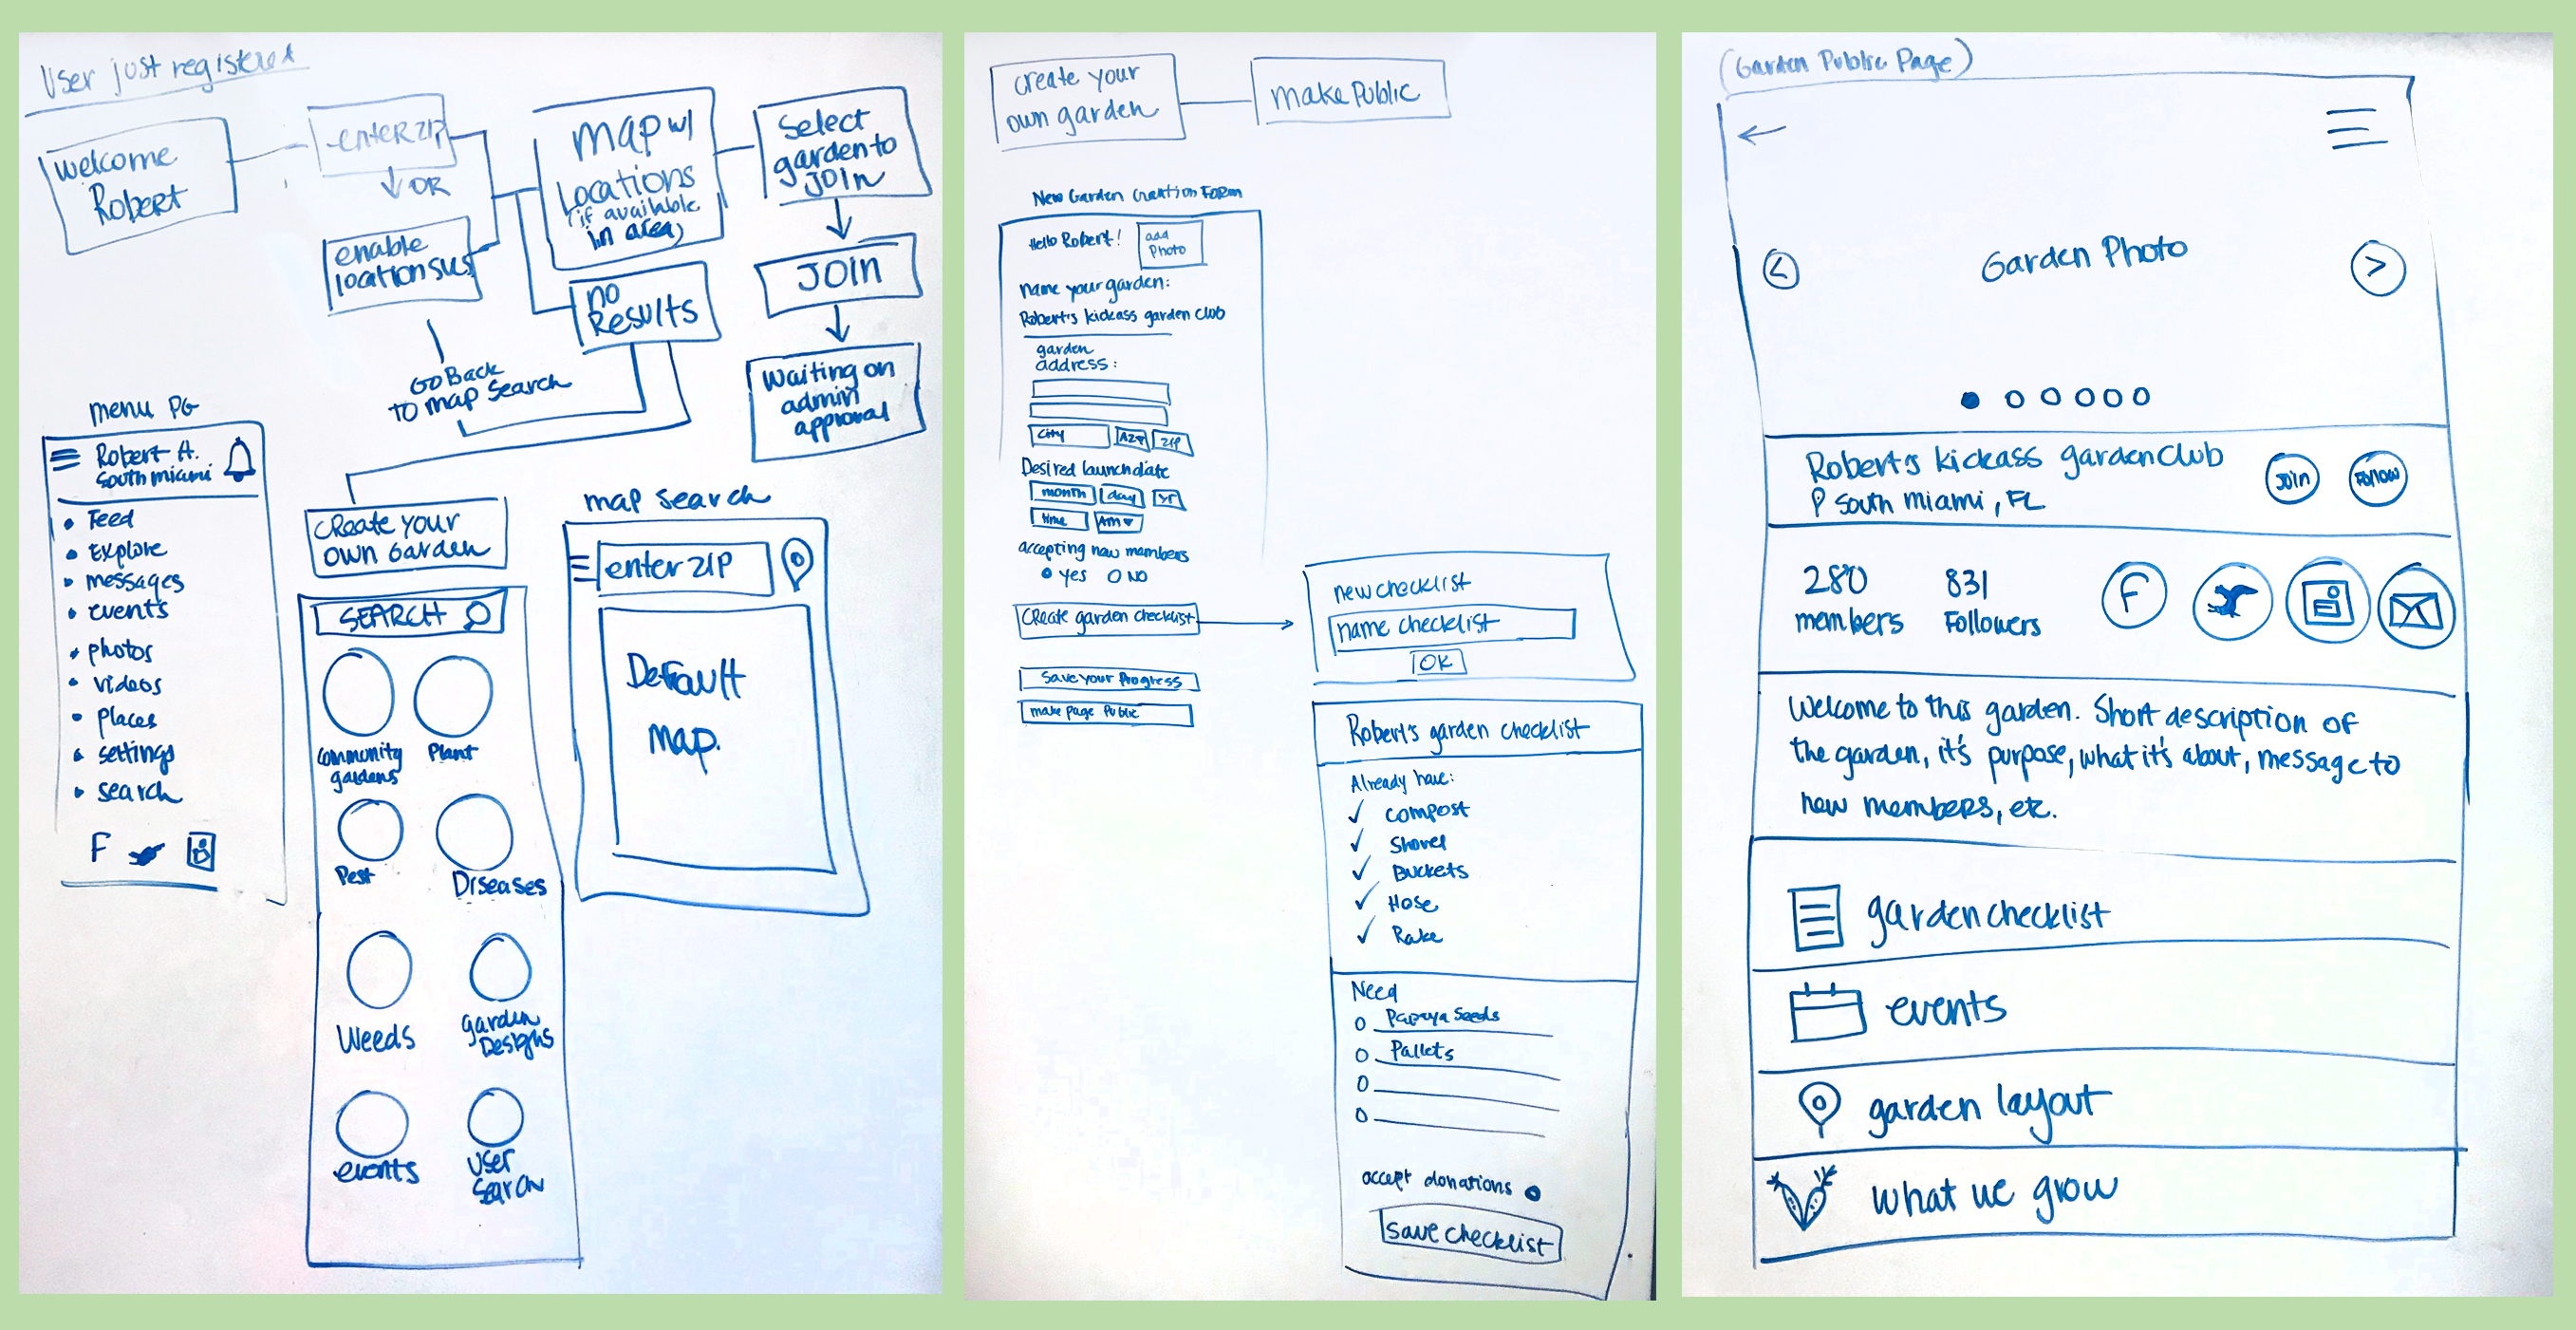 User just registered
welcome
Robert
enter ZIP
OR
enable
location svcs
map w/
Locations
(if available
in area)
no
Results
Select
garden to
JOIN
JOIN
waiting on
admin
approval
Go Back
To map Search
menu PG
Robert H.
South miami
Feed
Explore
messages
events
photos
videos
places
settings
search
F
Create your
own Garden
SEARCH
Community
gardens
Plant
Pest
Diseases
Weeds
garden
Designs
events
user
search
map search
enter ZIP
Default
map.
create your
own garden
make Public
New Garden Creation Form
Hello Robert!
add
Photo
name your garden:
Robert's kickass garden club
garden
address:
City
AZ
ZIP
Desired launch date
month
day
yr
time
AM
accepting new members
yes
NO
Create garden checklist
Save your Progress
make page Public
new checklist
name checklist
OK
Robert's garden checklist
Already have:
compost
Shovel
Buckets
Hose
Rake
Need
Papaya Seeds
Pallets
accept donations
save checklist
(Garden Public Page)
Garden Photo
<
>
Robert's kickass garden club
South miami, FL
Join
Follow
280
members
831
Followers
F
Welcome to this garden. Short description of
the garden, it's purpose, what it's about, message to
new members, etc.
garden checklist
events
garden layout
what we grow